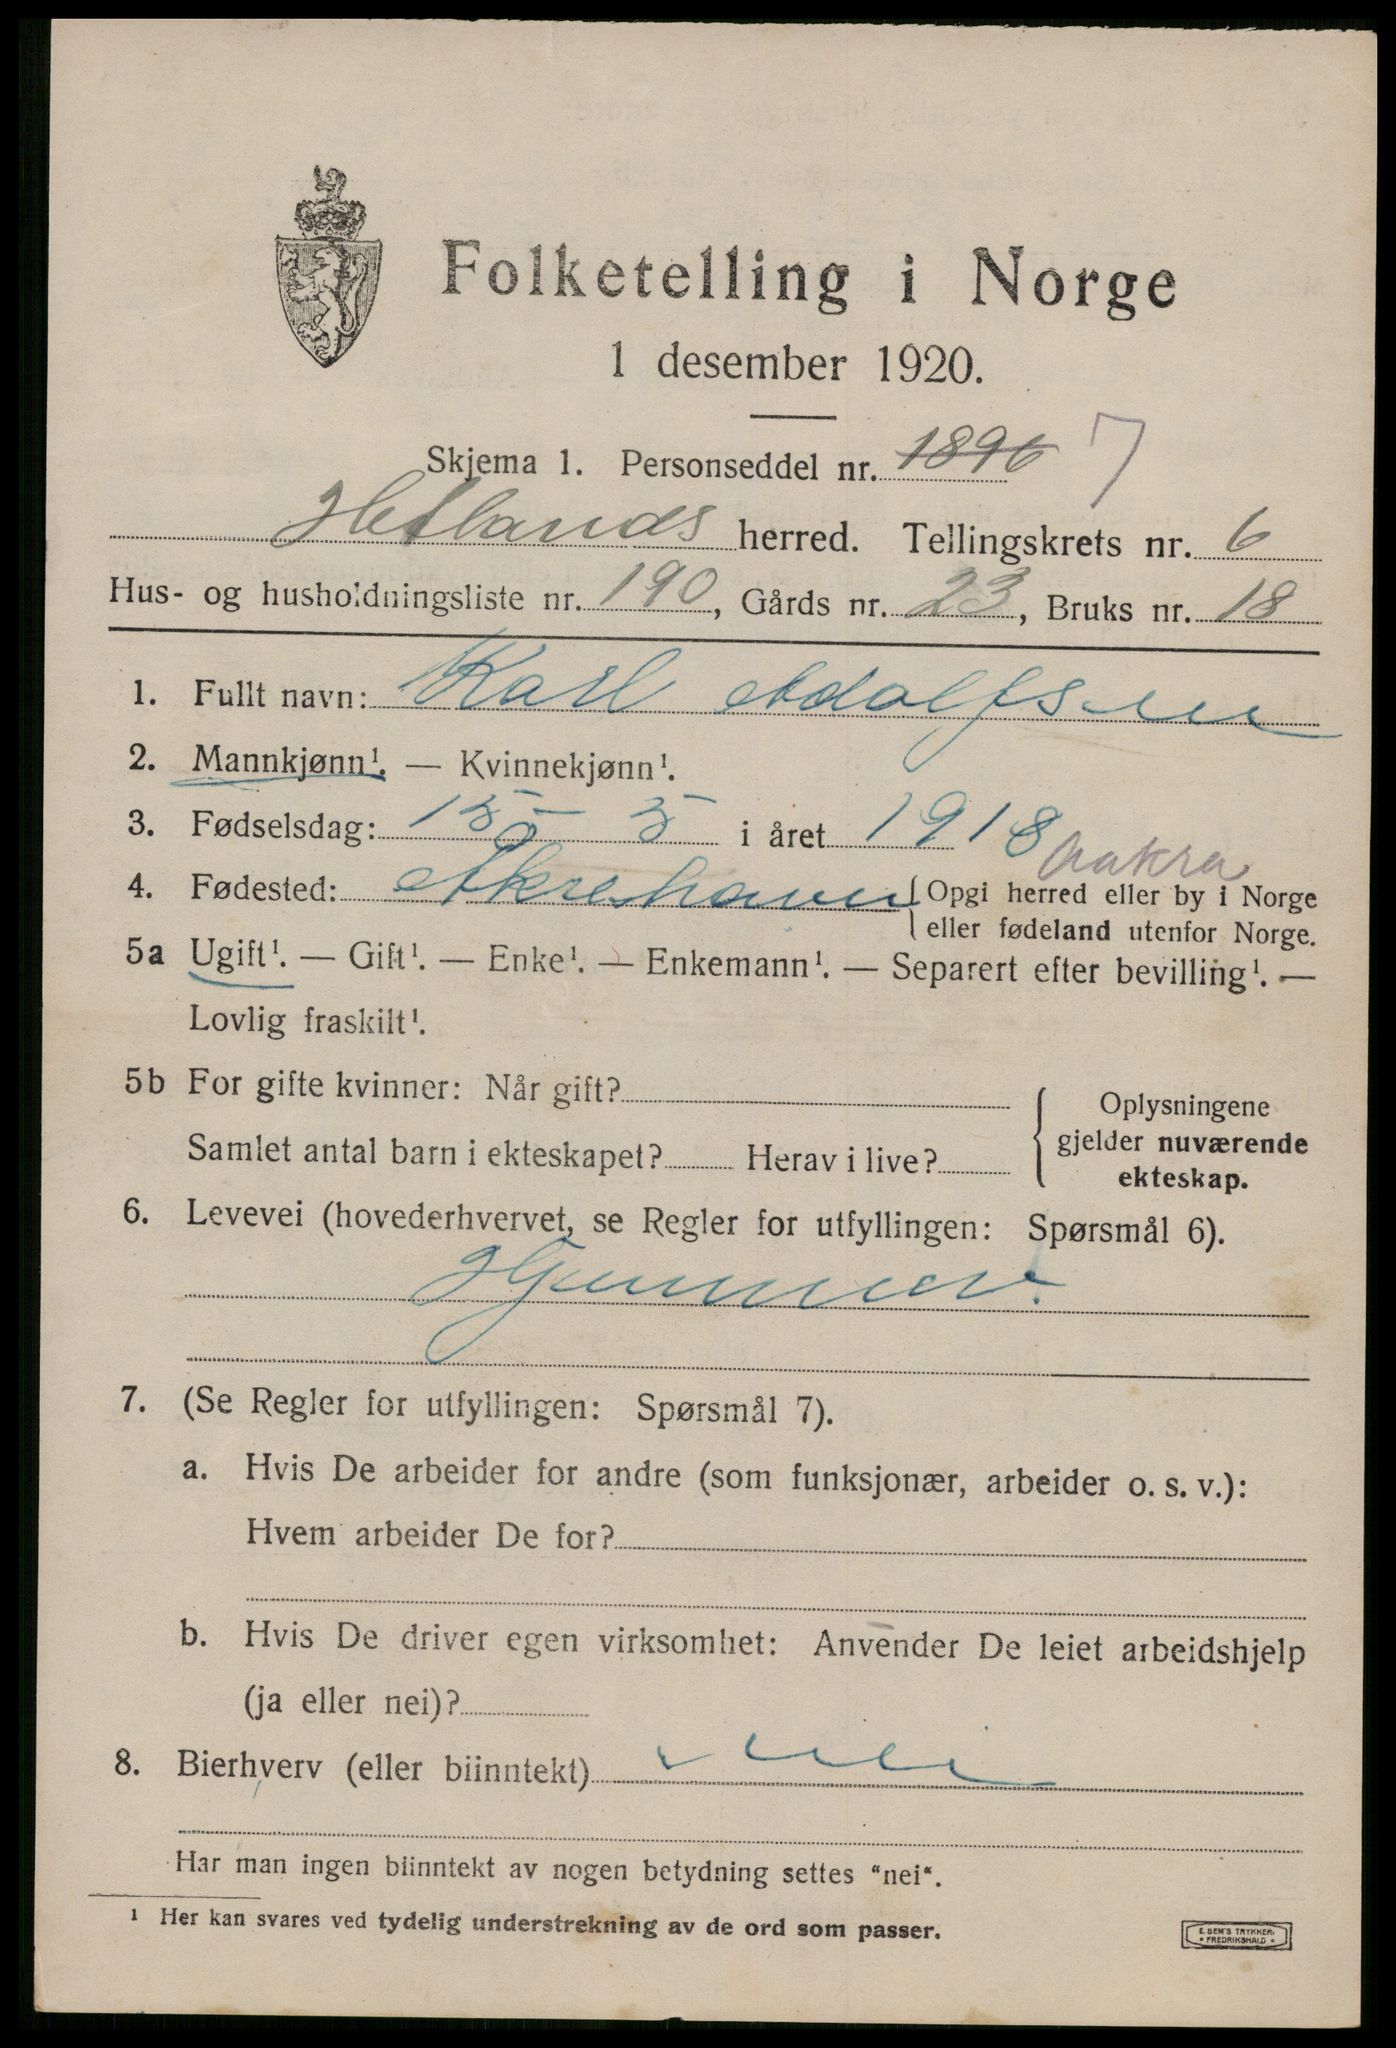 Folketelling i Norge
1 desember 1920.
Skjema 1. Personseddel nr. 1896 7
Hetlands herred. Tellingskrets nr. 6
Hus- og husholdningsliste nr. 190, Gårds nr. 23, Bruks nr. 18
1. Fullt navn: Karl Adolfsen
2. Mannkjønn¹. — Kvinnekjønn¹.
3. Fødselsdag: 15 - 5 i året 1918
Aakra
4. Fødested: Åkrehavn { Opgi herred eller by i Norge
eller fødeland utenfor Norge.
5a Ugift¹. — Gift¹. — Enke¹. — Enkemann¹. — Separert efter bevilling¹. —
Lovlig fraskilt¹.
5b For gifte kvinner: Når gift?
Samlet antal barn i ekteskapet? Herav i live?
Oplysningene
gjelder nuværende
ekteskap.
6. Levevei (hovederhvervet, se Regler for utfyllingen: Spørsmål 6).
Hjemme.
7. (Se Regler for utfyllingen: Spørsmål 7).
a. Hvis De arbeider for andre (som funksjonær, arbeider o. s. v.):
Hvem arbeider De for?
b. Hvis De driver egen virksomhet: Anvender De leiet arbeidshjelp
(ja eller nei)?
8. Bierhverv (eller biinntekt) nei
Har man ingen biinntekt av nogen betydning settes "nei".
¹ Her kan svares ved tydelig understrekning av de ord som passer.
E. SEM'S TRYKKERI
• FREDRIKSHALD •